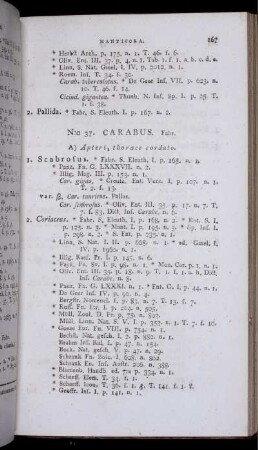 MANTICORA. 167
* Herbst Arch. p. 175. n. 1. T. 46. f. 6.
* Oliv. Ent. III. 37. p. 4. n. 1. Tab. 1. f. 1. a. b. c. d. e.
* Linn. S. Nat. Gmel. I. IV. p. 2012. n. 1.
* Roem. Inf. T. 34. f. 30.
Carab. tuberculatus. * De Geer Inf. VII. p. 623. n.
10. T. 46. f. 14.
Cicind. gigantea. * Thunb. N. Inf. Sp. I. p. 25. T.
1. f. 38.
2. Pallida. * Fabr. S. Eleuth. I. p. 167. n. 2.
N:o 37. CARABUS. Fabr.
A) Apteri, thorace cordato.
1. Scabrosus. * Fabr. S. Eleuth. I. p. 168. n. 1.
* Panz. Fn. G. LXXXVII. n. 2.
* Illig. Mag. III. p. 153. n. 1.
Car. gigas, * Creutz. Ent. Vers. I. p. 107. n. 1.
T. 2. f. 13.
var. β. Car. tauricus. Pallas.
Car. scabrosus. * Oliv. Ent. III. 35. p. 17. n. 7. T.
7. f. 83. Dict. Inf. Carabe. n. 5.
2. Coriaceus. * Fabr. S. Eleuth. I. p. 168. n. 2. * Ent. S. I.
p. 125. n. 3. * Mant. I. p. 195. n. 3. * Sp. inf. I.
p. 298. n. 3. * S. Ent. p. 235. n. 1.
* Linn. S. Nat. I. II. p. 668. n. 1. * ed. Gmel. I.
IV. p. 1960. n. 1.
* Illig. Kuef. Pr. I. p. 146. n. 6.
* Payk. Fn. Sv. I. p. 98. n. 1. * Mon. Car. p. 1. n. 1.
* Oliv. Ent. III. 35. p. 18. n. 9. T. 1. f. 1. a. b. Dict.
Inf. Carabe. n. 3.
* Panz. Fn. G. LXXXI. n. 1. * Ent. G. I. p. 44. n. 1.
* De Geer Inf. IV. p. 90. n. 4.
Bergstr. Nomencl. I. p. 83. n. 7. T. 13. f. 7.
* Ross. Fn. Etr. I. p. 204. n. 505.
* Müll. Zool. D. Pr. p. 75. n. 801.
* Müll. Linn. S. Nat. V. I. p. 333. n. 1. T. 7. f. 10.
* Goeze Ent. Fn. VIII. p. 754. n. 1.
* Bechst. Naturgesch. I. I. p. 991. n. 1.
Brahm Inf. Kal. I. p. 47. n. 154.
* Bock. Nat. gesch. V. p. 42. n. 29.
* Schrank Fn. Boic. I. §. 608. n. 702.
Schrank En. Inf. Austr. 206. n. 388.
* Blumenb. Handb. ed 7:a p. 334. n. 1.
* Schaeff. Elem. T. 34. f. 1.
* Schaeff. Icon. T. 36. f. 1. §. T. 141. f. 1. ♀
* Geoffr. Inf. I. p. 141. n. 1.